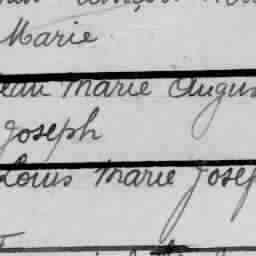 Marie
ean Marie Augus
Joseph
Louis Marie Josep